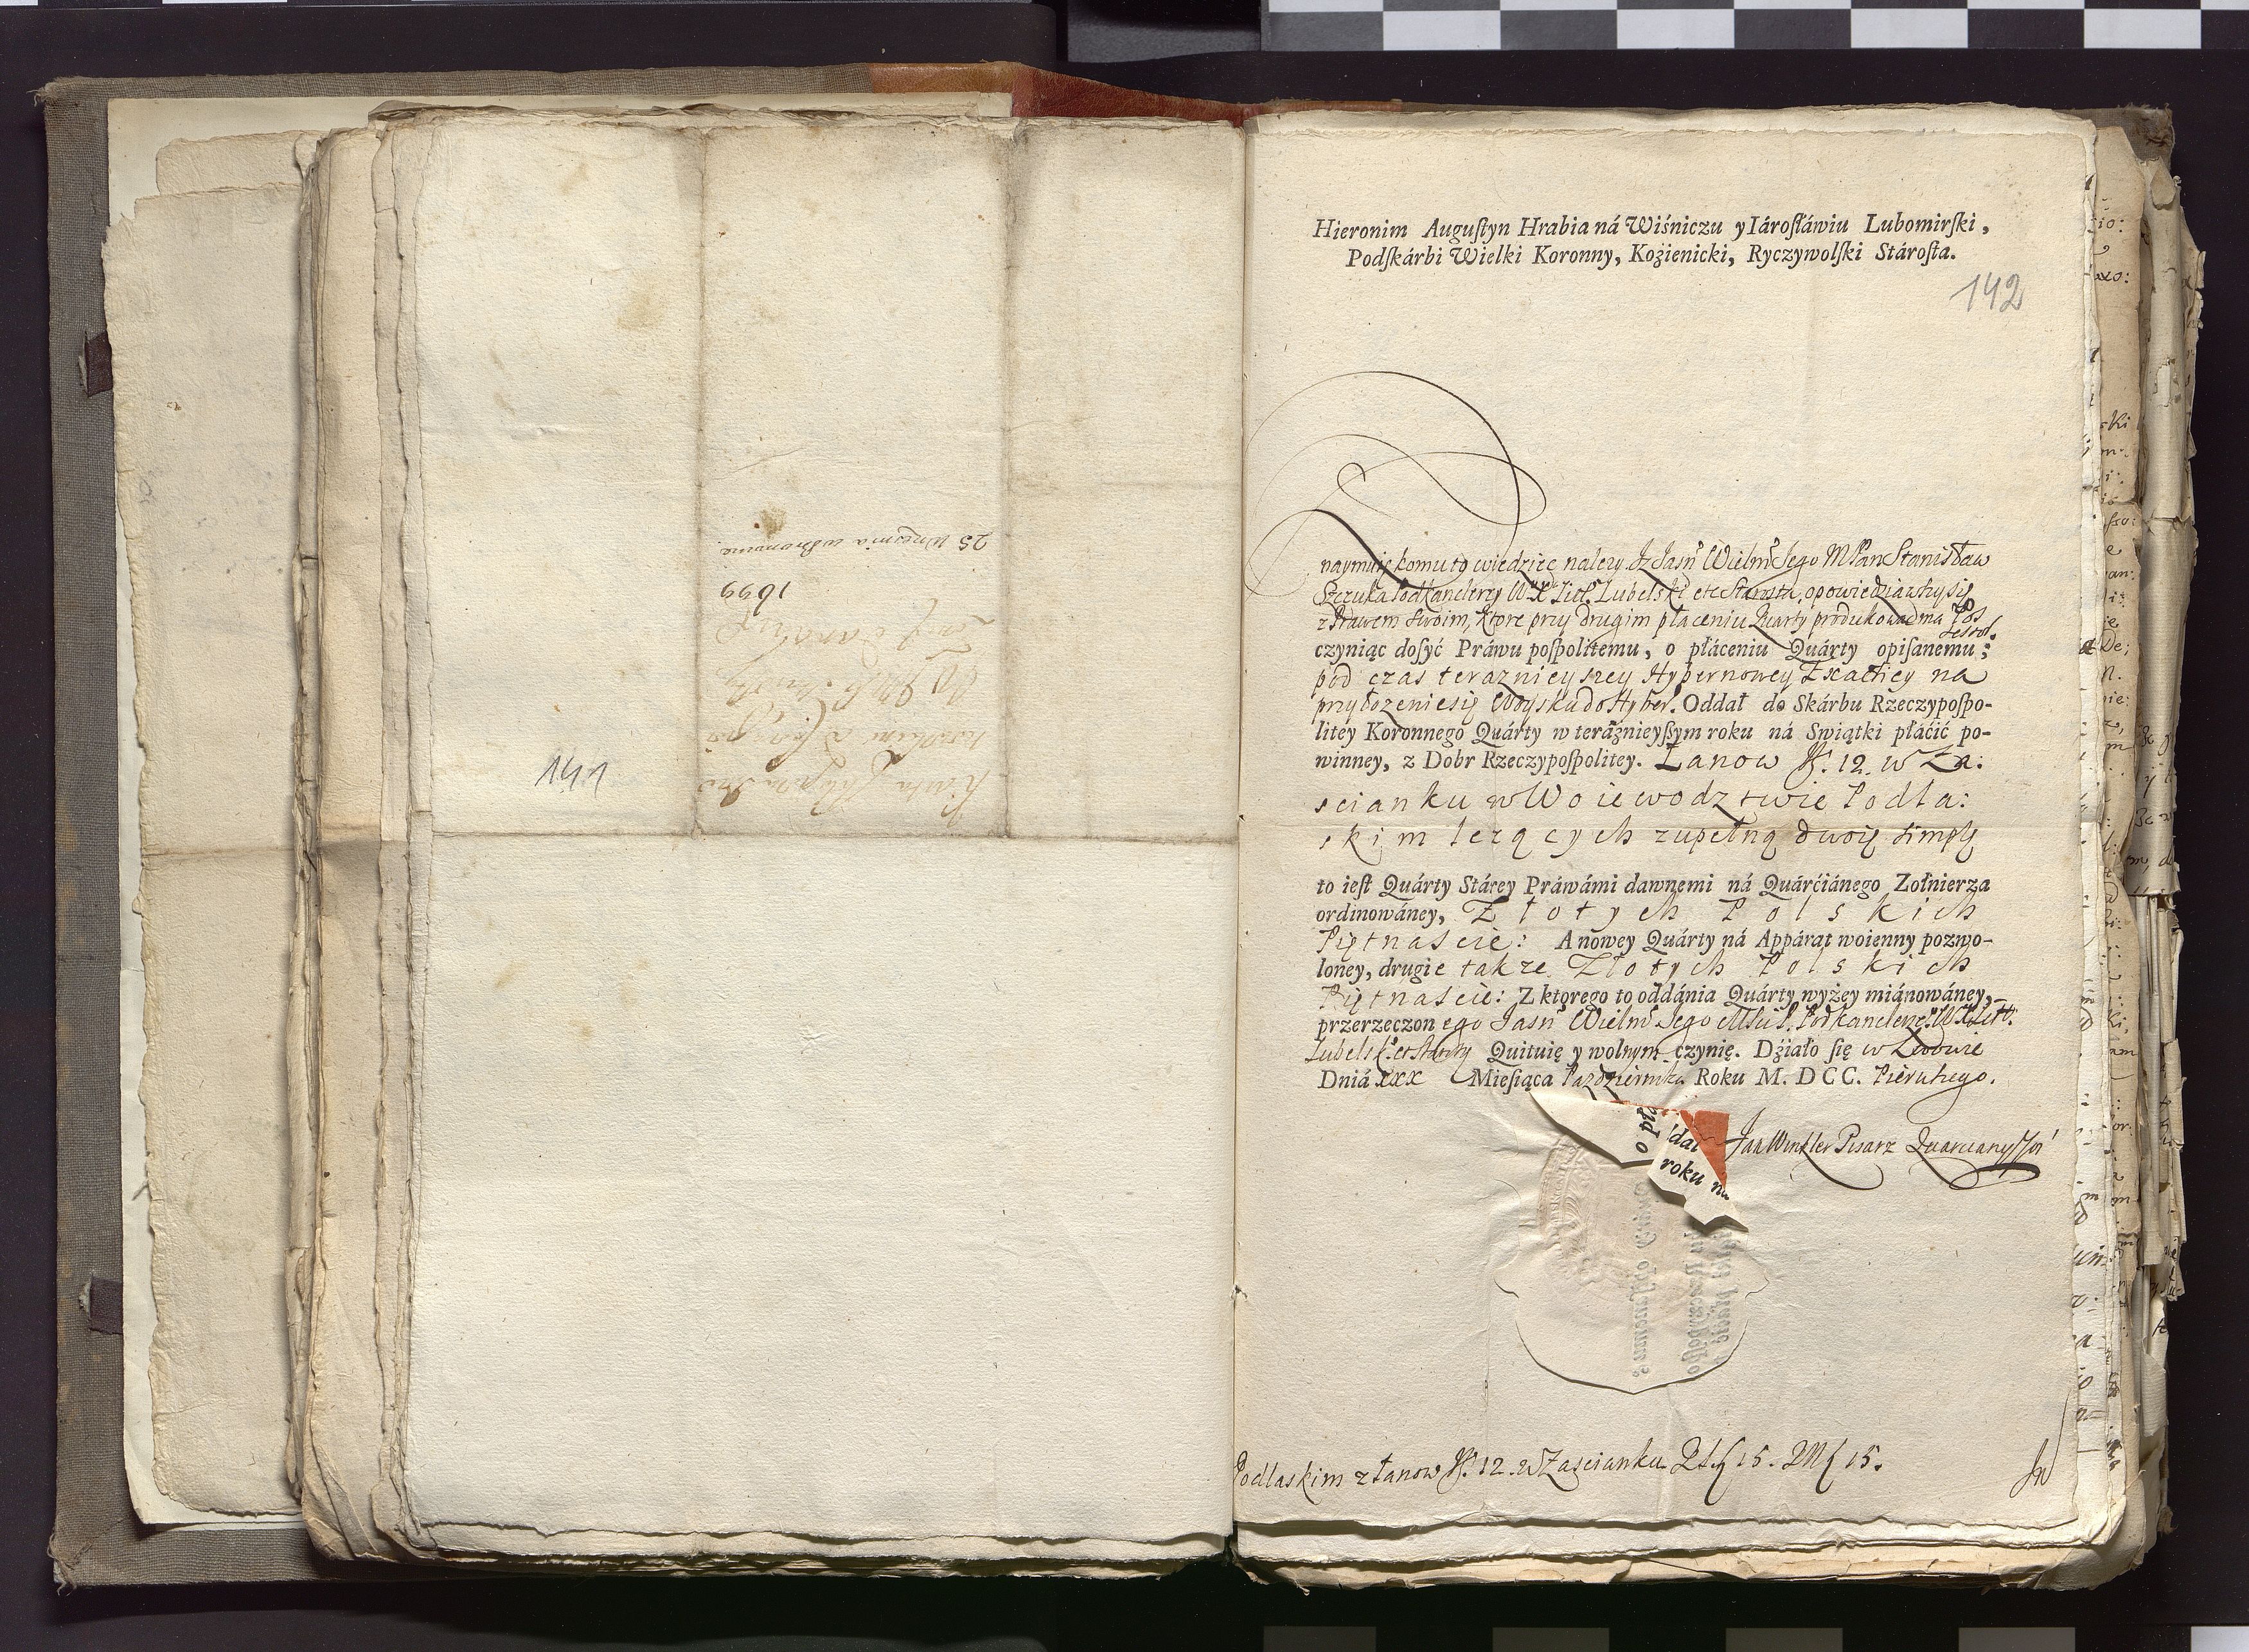 25 Wrzesnia w Warszawie
1699
141
Hieronim Auguſtyn Hrabia ná Wiśniczu y Iárosłáwiu Lubomirſki,
Podſkárbi Wielki Koronny, Kozienicki, Ryczywolſki Stároſta.
142
Znaymuię komu to wiedziec nalezy. Iz Jasń Wielmº Jego M Pan Stanisław
Szczuka Podkanclerzy W X Litt. Lubelski etc Starosta, opowiedziawszy się
z Prawem swoim, ktore przy drugim płaceniu Kwarty produkować ma Pos
sessor.
czyniąc dosyć Práwu poſpolitemu, o płáceniu Quárty opiſanemu;
pod czas teraznieyszey Hybernowey Exactiey na
przyłozenie się Woyska do Hyber. Oddał do Skárbu Rzeczypoſpo-
litey Koronnego Quárty w teráźnieyſſym roku ná Swiątki płáćić po-
winney, z Dobr Rzeczypoſpolitey. Łanow Nº. 12. w Za:
scianku w Woiewodztwie Podla:
skim lezących zupełną dwoię simplę
to ieſt Quárty Stárey Práwámi dawnemi ná Quárćiánego Zołnierza
ordinowáney, Złotych Polskich
Piętnascie: A nowey Quárty ná Appárat woienny pozwo-
loney, drugie takze Złotych Polskich
Piętnascie: Z ktorego to oddánia Quárty wyżey miánowáney,
przerzeczonego Jasń Wielmº Jego Mści P. Podkanclerzº W X Litt.
Lubelskº etc Starosty Quituię y wolnym czynię. Dźiało ſię w Lwowie
Dniá XXX Mieſiąca Pazdziernika Roku M. DCC. Pierwszego.
o płá
dał
roku ná
Jan Winkler Pisarz Quarciany
Podlaskim z łanow Nº. 12. w Zascianku 15. 15.